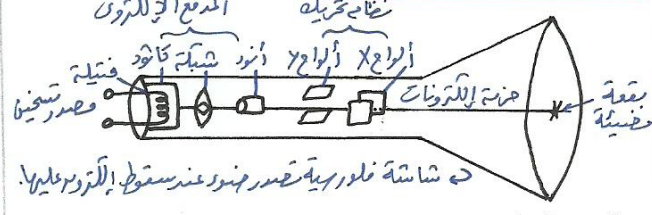 المدفع الإلكتروني نظام تحريك
فتيلة كاثود شبكة أنود ألواح Y ألواح X
مصدر تسخين
حزمة إلكترونات
بقعة مضيئة
شاشة فلورسية تصدر ضوء عند سقوط إلكترون عليها.